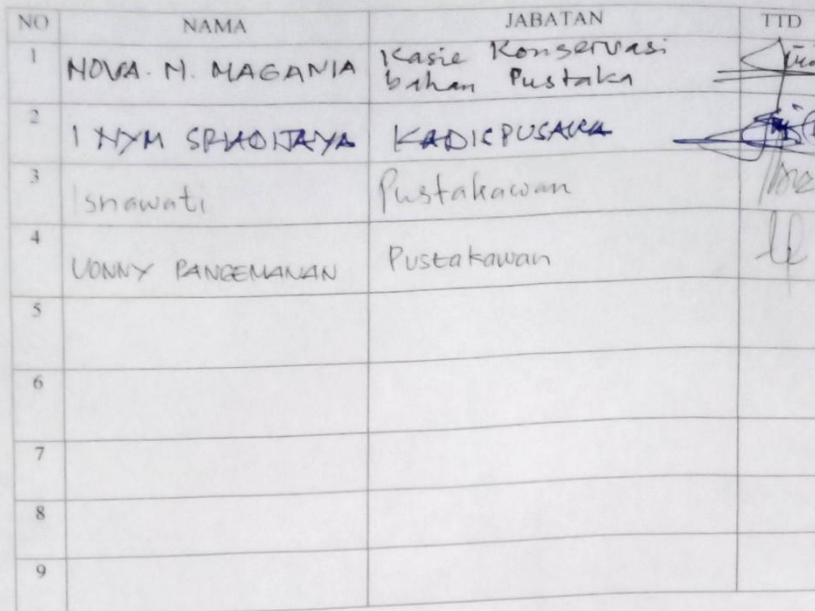 NO NAMA JABATAN TTD
1 NOVA. N. MAGANIA Kasie Konservasi
bahan Pustaka
2 I NYM SRIADIJAYA KADISPUSAKA
3 Isnawati Pustakawan
4 VONNY PANGEMANAN Pustakawan
5
6
7
8
9